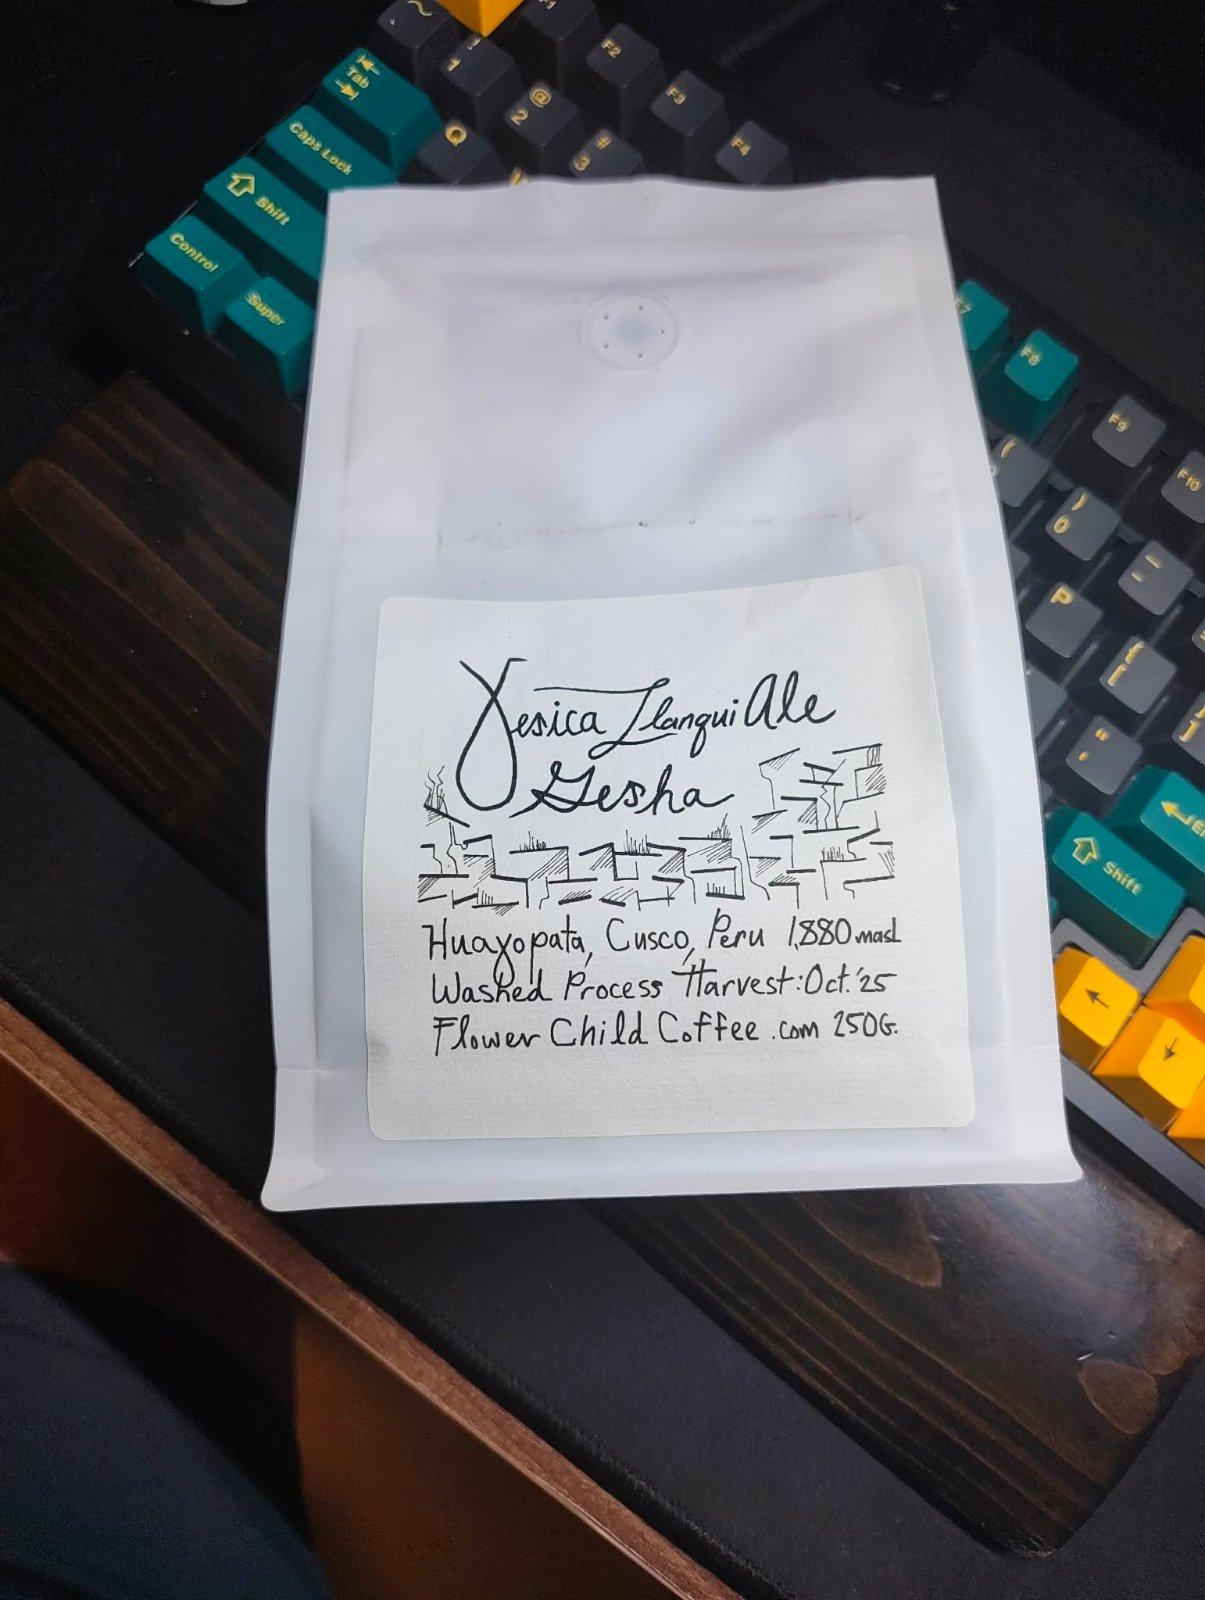 ~
1
F1
F2
F3
F4
Tab
@
2
#
3
Q
Caps Lock
Shift
Control
Super
F7
F8
F9
F10
(
)
0
_
-
P
{
[
"
'
Shift
Yesica Llanqui Ale
Gesha
Huayopata, Cusco, Peru 1,880 masl
Washed Process Harvest: Oct. '25
Flower Child Coffee .com 250G.